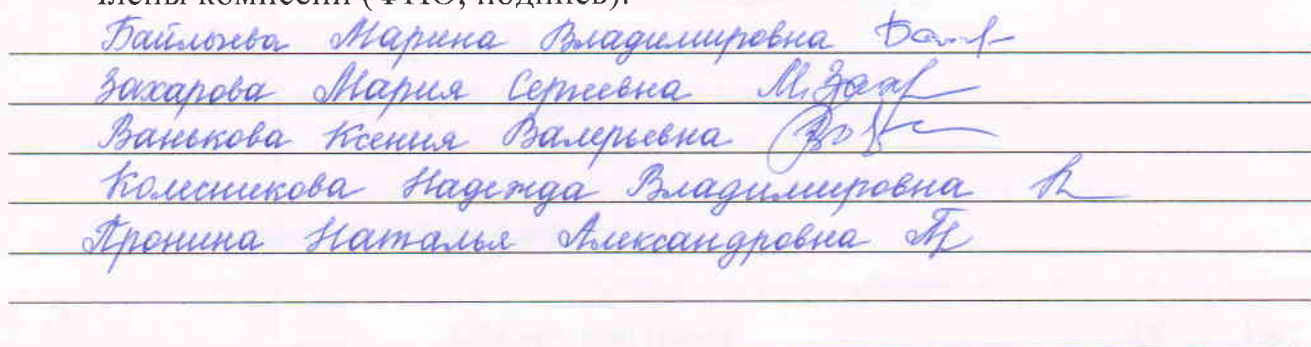 члены комиссии (ФИО, подпись):
Марина Владимировна
Захарова Мария Сергеевна М.Зах
Ванькова Ксения Валерьевна
Колесникова Надежда Владимировна
Пронина Наталья Александровна Пр